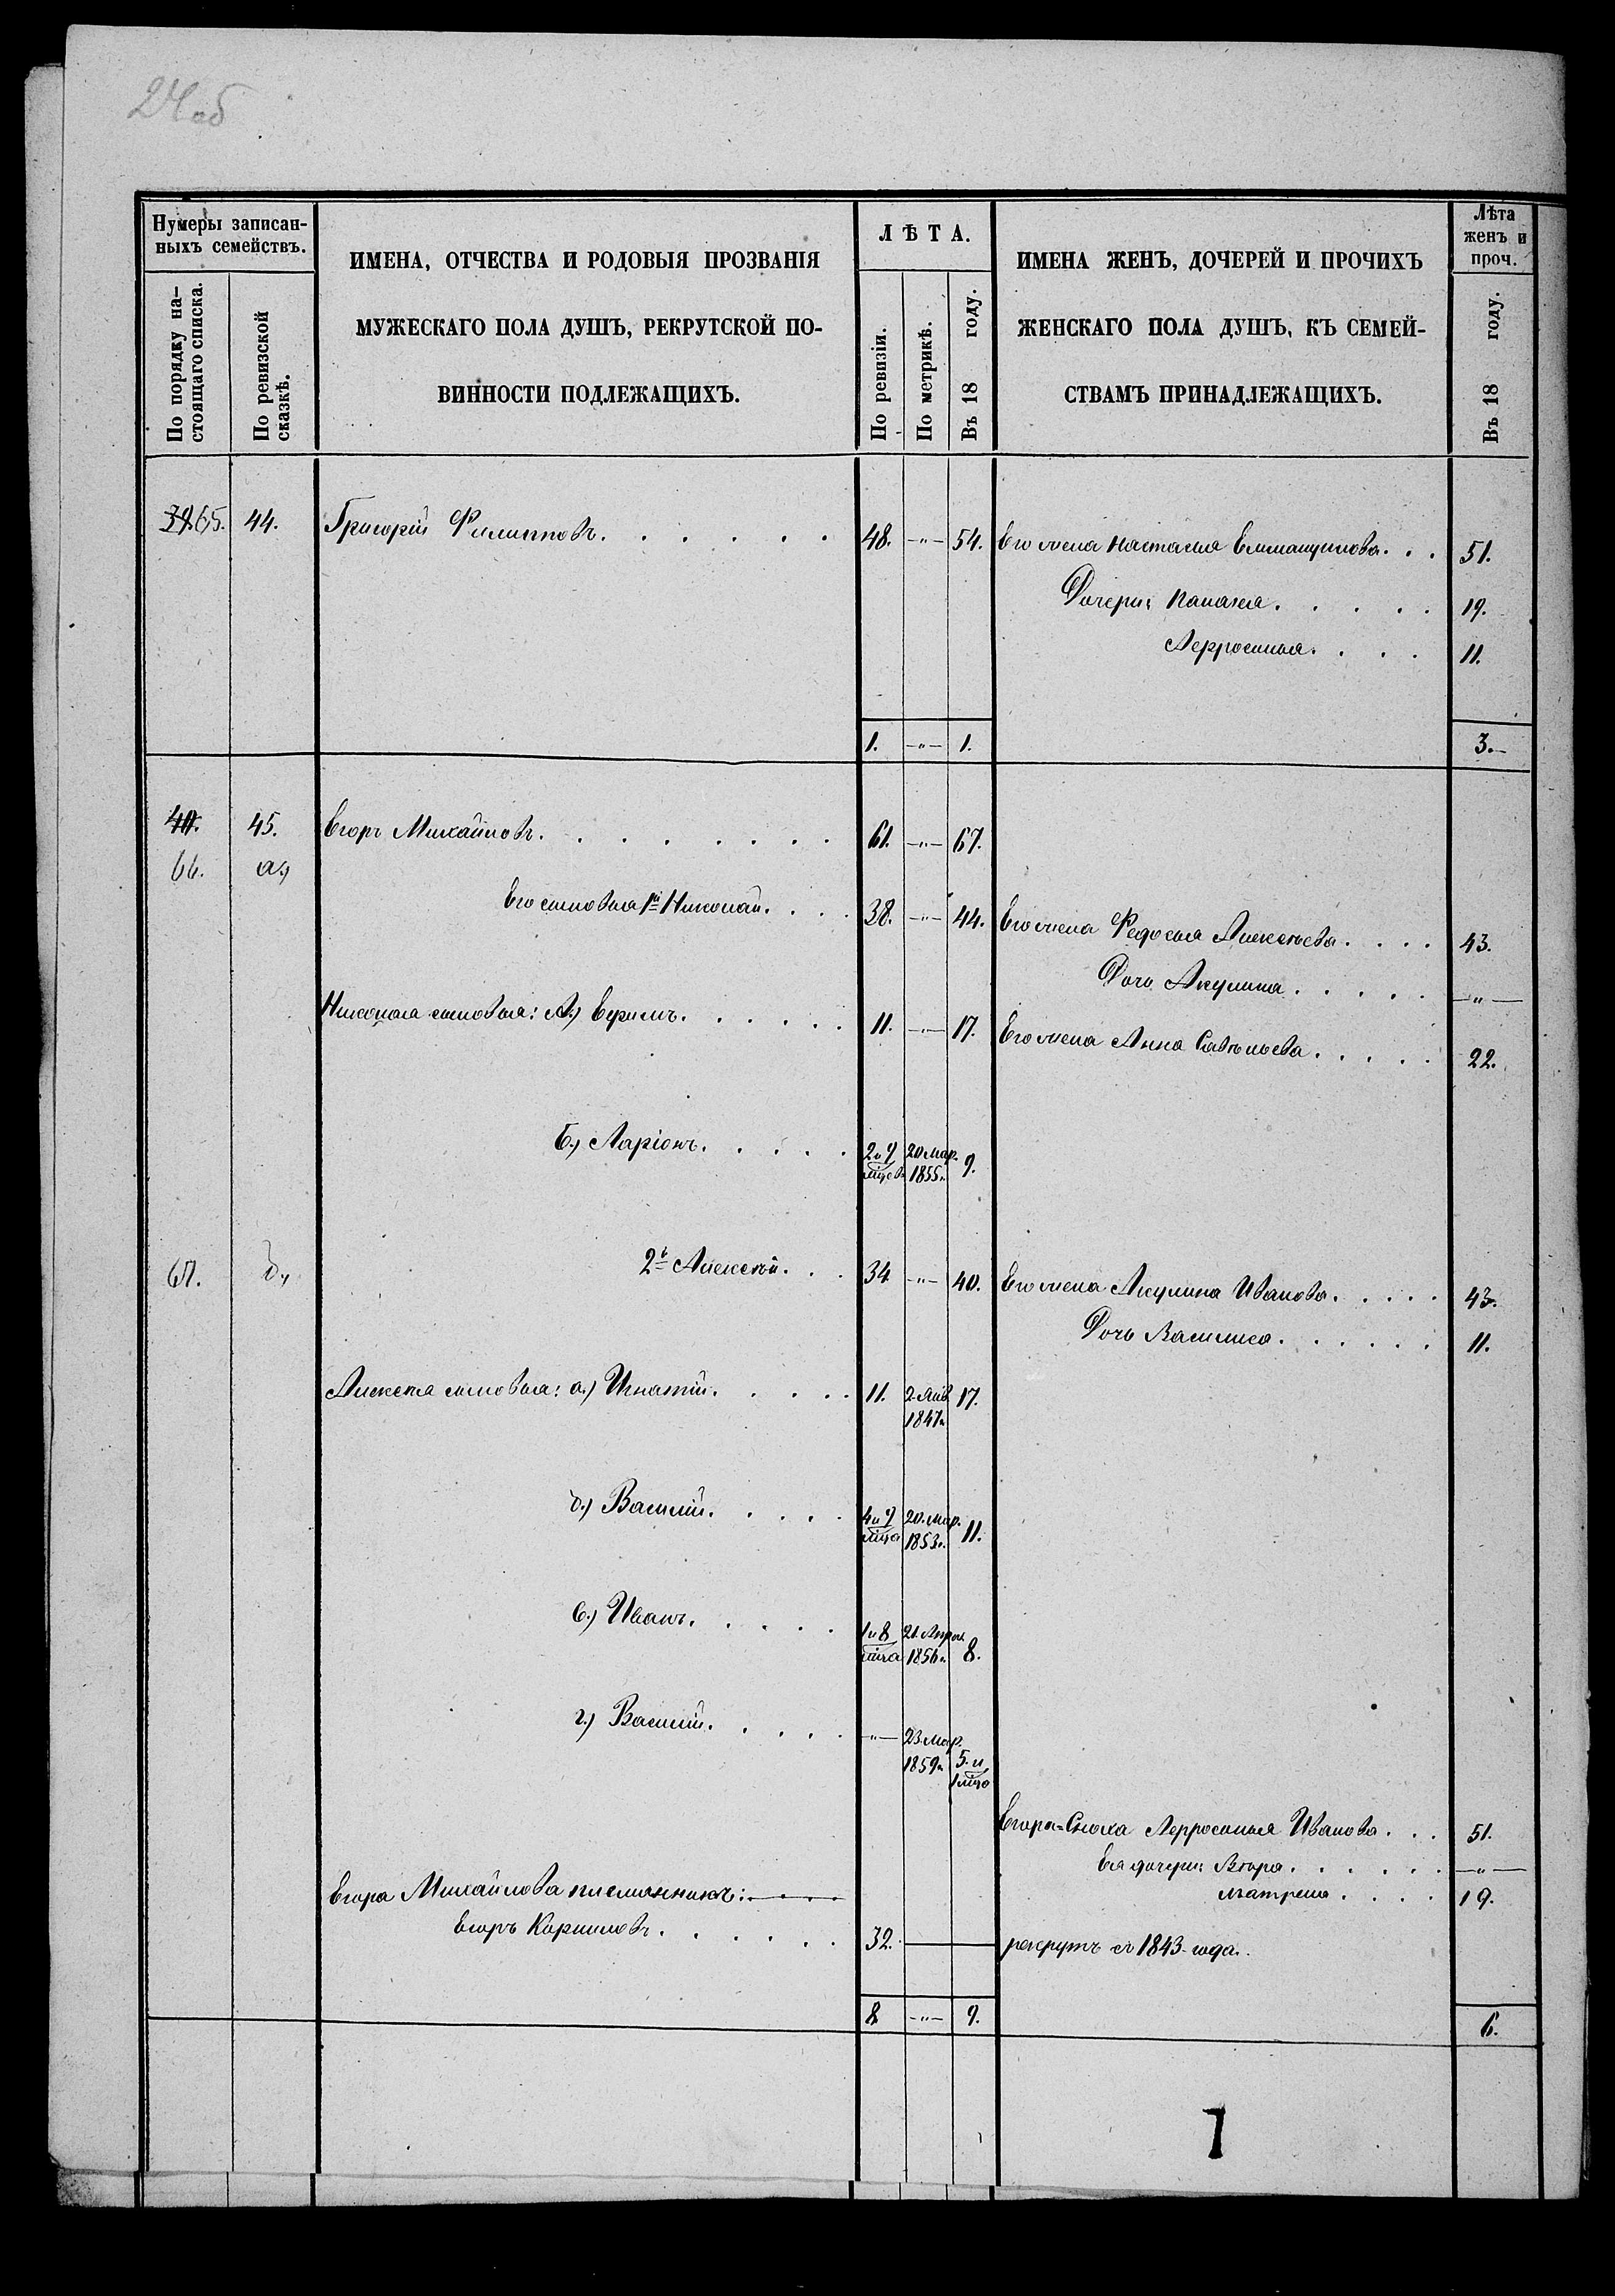 24об
Нумеры записан-
ныхъ семействъ.
По порядку на-
стоящаго списка.
По ревизской
сказкѣ.
ИМЕНА, ОТЧЕСТВА И РОДОВЫЯ ПРОЗВАНІЯ
МУЖЕСКАГО ПОЛА ДУШЪ, РЕКРУТСКОЙ ПО-
ВИННОСТИ ПОДЛЕЖАЩИХЪ.
ЛѢТА.
По ревизіи.
По метрикѣ.
Въ 18 году.
ИМЕНА ЖЕНЪ, ДОЧЕРЕЙ И ПРОЧИХЪ
ЖЕНСКАГО ПОЛА ДУШЪ, КЪ СЕМЕЙ-
СТВАМЪ ПРИНАДЛЕЖАЩИХЪ.
Лѣта
женъ и
проч.
Въ 18 году.
65. 44. Григорій Филипповъ. . . . . . . 48. —„— 54. Его жена Настасья . . . 51.
Дочери: . . . . . 19.
Аефросинья. . . . 11.
1. —„— 1. 3.—
40. 45. Егоръ Михайловъ. . . . . . . . 61. —„— 67.
66. а.)
Его сыновья 1й Николай. . . . 38. —„— 44. Его жена Федосья Алексѣева. . . . 43.
Дочь Акулина. . . . . —„—
Николая сыновья: А.) Ефимъ. . . . . . 11. —„— 17. Его жена Анна Савельева. . . . . 22.
Б.) Ларіонъ. . . . . 2 и 9 20 Мар. 9.
мѣцевъ 1855г.
67. б., 2й Алексѣй. . . 34 —„— 40. Его жена Акулина Иванова. . . . . 43.
Дочь Василиса. . . . . . 11.
Алексѣя сыновья: а.) Игнатій. . . . . 11. 2. Янв 17.
1847г
б.) Василій. . . . . 4 и 9 20. Мар. 11.
мѣца 1853г.
в.) Иванъ. . . . . 1 и 8 21. Апрѣл 8.
мѣца 1856г.
г.) Василій. . . . . —„— 23. Мар.
1859г 5. и
1 мѣцо
Егора=Сноха Аефросинья Иванова. . . 51.
Ея дочери: . . . . . . —„—
Егора Михайлова племянникъ:
Матрена. . . . 19.
Егоръ Корниловъ. . . . . . 32. рекрутъ съ 1843 года.
8 —„— 9. 6.
7